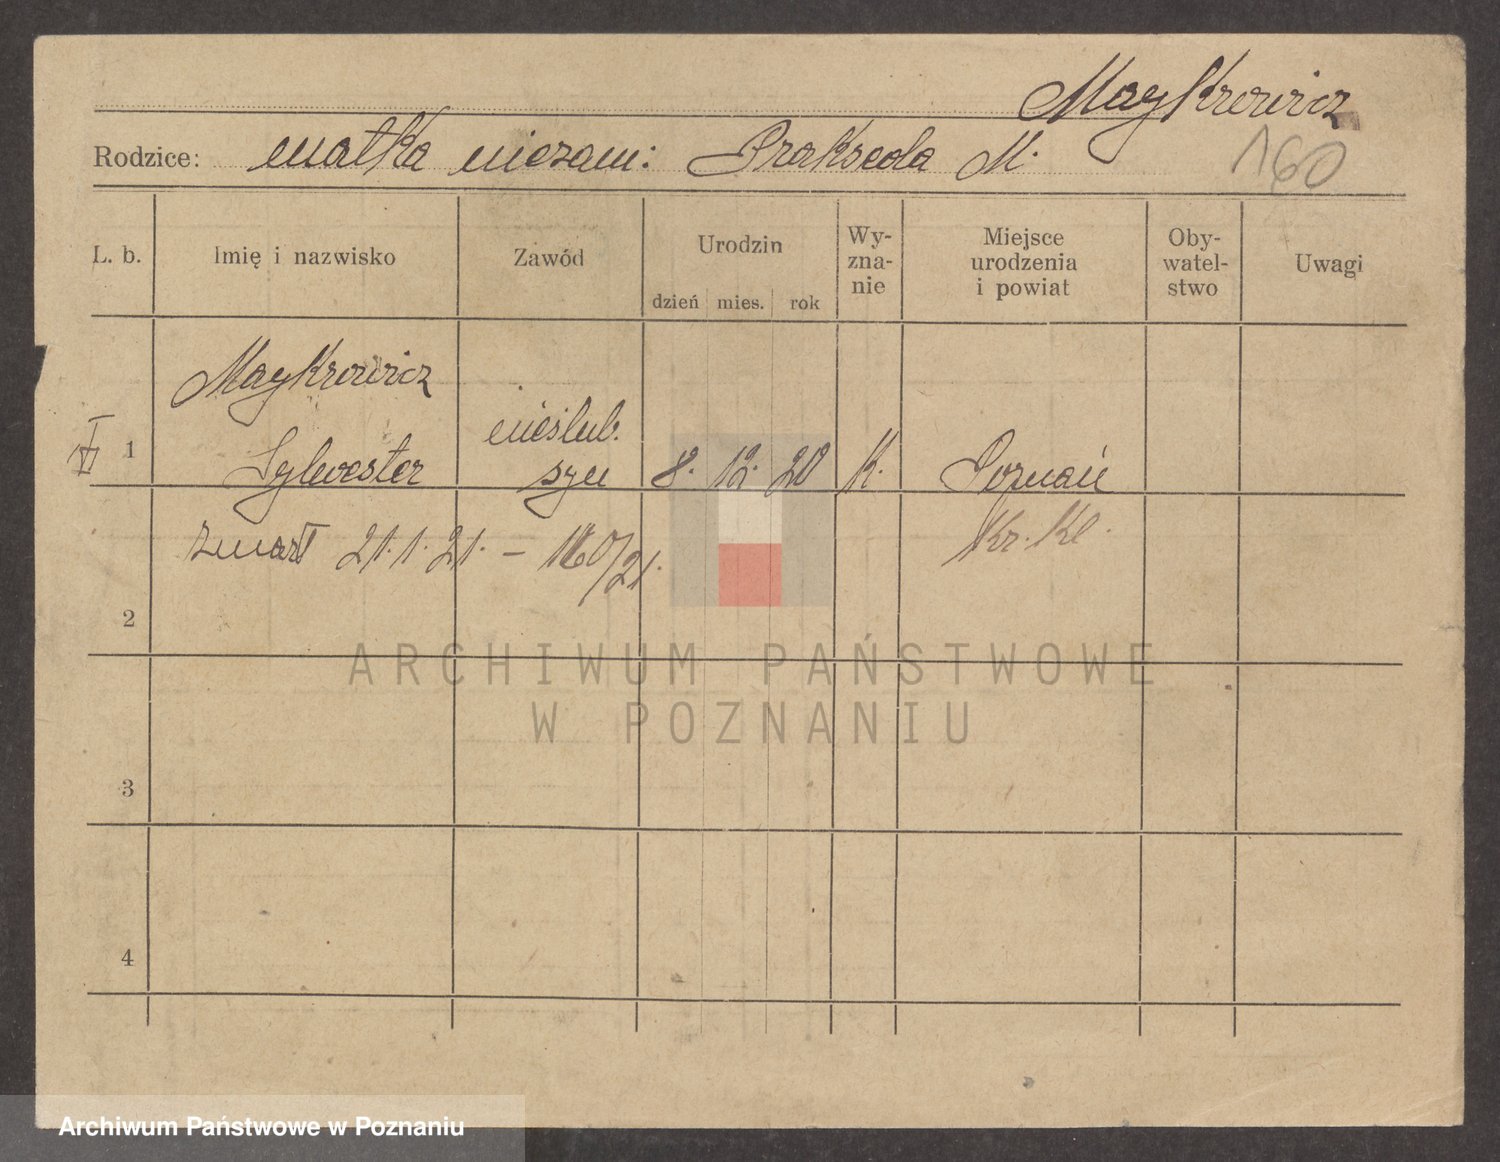 Maykrowicz
Rodzice: matka niezam: Prakseda M.
160
L. b. Imię i nazwisko Zawód Urodzin Wy- zna- nie Miejsce urodzenia i powiat Oby- watel- stwo Uwagi
dzień mies. rok
Maykrowicz
1 Sylwester nieślub. syn 8. 12. 20 k. Poznań
zmarł 21.1.21. – 160/21. Kr. Kl.
2
3
4
ARCHIWUM PAŃSTWOWE
W POZNANIU
Archiwum Państwowe w Poznaniu